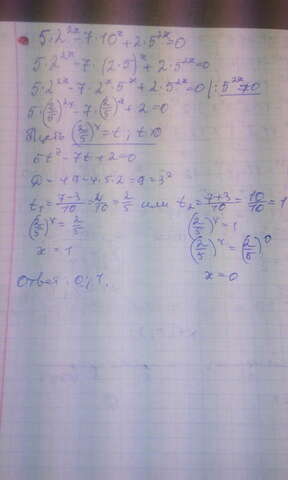 5·2^{2x} - 7·10^x + 2·5^{2x} = 0
5·2^{2x} - 7·(2·5)^x + 2·5^{2x} = 0
5·2^{2x} - 7·2^x·5^x + 2·5^{2x} = 0 | : 5^{2x} ≠ 0
5·(2/5)^{2x} - 7·(2/5)^x + 2 = 0
Пусть (2/5)^x = t, t > 0
5t² - 7t + 2 = 0
D = 49 - 4·5·2 = 9 = 3²
t₁ = (7-3)/10 = 4/10 = 2/5 или t₂ = (7+3)/10 = 10/10 = 1
(2/5)^x = 2/5 (2/5)^x = 1
x = 1 (2/5)^x = (2/5)^0
x = 0
Ответ: 0; 1.